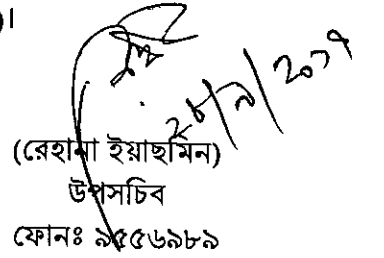 )।
২৮/৯/২০১৭
(রেহানা ইয়াছমিন)
উপসচিব
ফোনঃ ৯৫৫৬৯৮৯